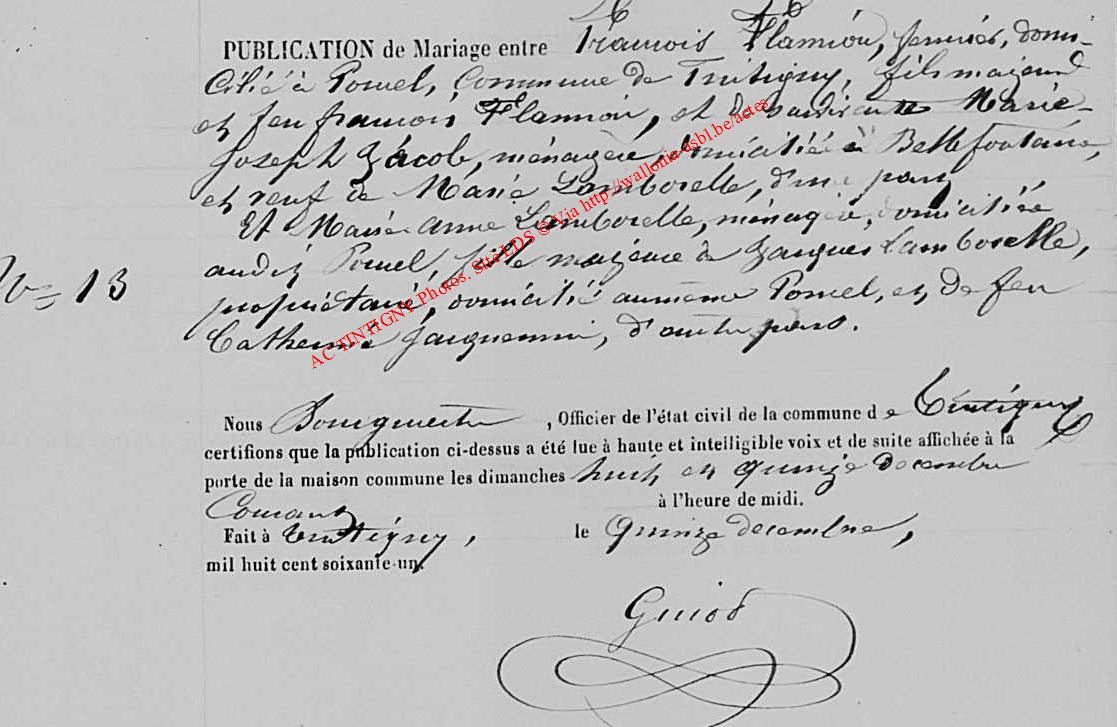 PUBLICATION de Mariage entre François Flamion, fermier, domi-
cilié à Poncel, Commune de Tintigny, fils majeur
et feu françois Flamion, et de survivante Marie-
Joseph Jacob, ménagère, domiciliée à Bellefontaine,
et veuf de Marie Lamborelle, d'une part,
Et Marie Anne Lamborelle, ménagère, domiciliée
audit Poncel, fille majeure de Jacques Lamborelle,
N° 13
propriétaire, domicilié au même Poncel, et de feu
Catherine Jacquemin, d'autre part.
Nous Bourgmestre, Officier de l'état civil de la commune de Tintigny
certifions que la publication ci-dessus a été lue à haute et intelligible voix et de suite affichée à la
porte de la maison commune les dimanches huit et quinze decembre
Courant à l'heure de midi.
Fait à Tintigny, le quinze decembre,
mil huit cent soixante-un.
AC TINTIGNY Photos. Site LDS © Via http://wallonia-asbl.be/actes